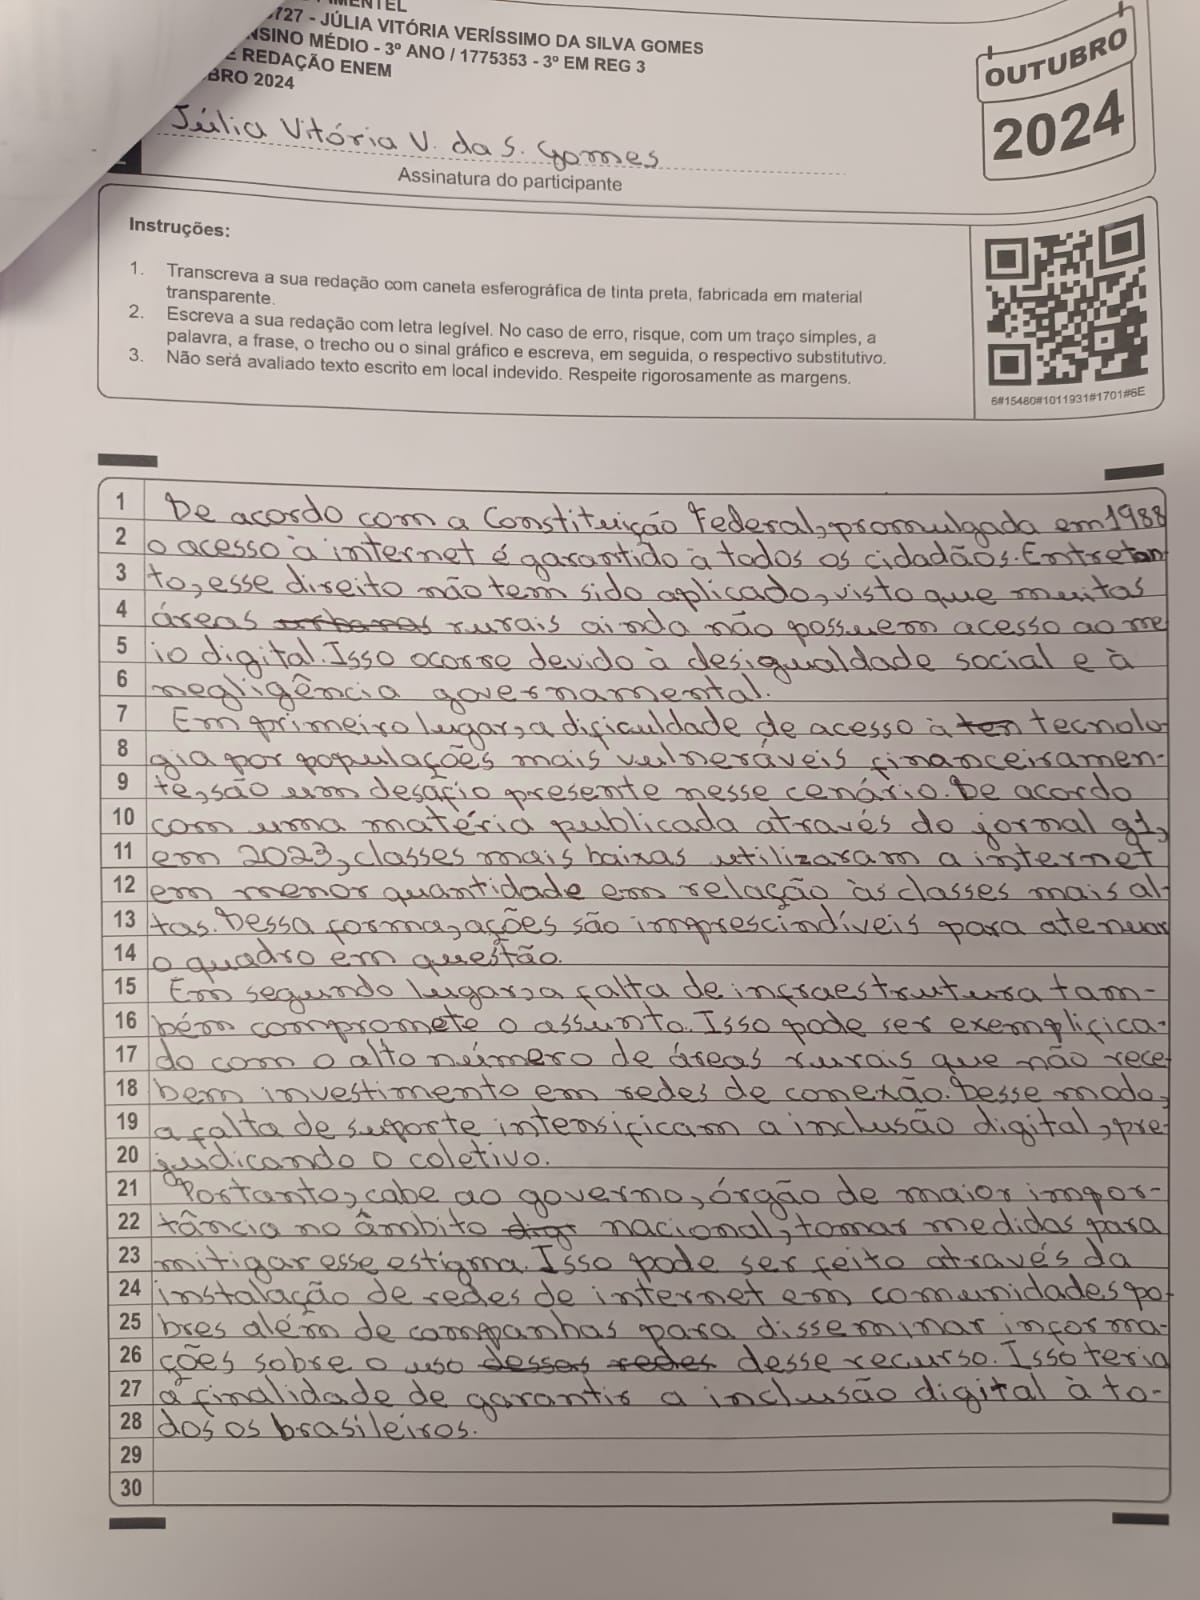 IMENTEL
727 - JÚLIA VITÓRIA VERÍSSIMO DA SILVA GOMES
NSINO MÉDIO - 3º ANO / 1775353 - 3º EM REG 3
E REDAÇÃO ENEM
BRO 2024
OUTUBRO
2024
Júlia Vitória V. da S. Gomes
Assinatura do participante
Instruções:
1. Transcreva a sua redação com caneta esferográfica de tinta preta, fabricada em material
transparente.
2. Escreva a sua redação com letra legível. No caso de erro, risque, com um traço simples, a
palavra, a frase, o trecho ou o sinal gráfico e escreva, em seguida, o respectivo substitutivo.
3. Não será avaliado texto escrito em local indevido. Respeite rigorosamente as margens.
6#15480#1011931#1701#6E
1 De acordo com a Constituição Federal, promulgada em 1988
2 o acesso à internet é garantido à todos os cidadãos. Entretan
3 to, esse direito não tem sido aplicado, visto que muitas
4 áreas urbanas rurais ainda não possuem acesso ao me
5 io digital. Isso ocorre devido à desigualdade social e à
6 negligência governamental.
7 Em primeiro lugar, a dificuldade de acesso à ten tecnolo
8 gia por populações mais vulneráveis financeiramen-
9 te, são um desafio presente nesse cenário. De acordo
10 com uma matéria publicada através do jornal g1,
11 em 2023, classes mais baixas utilizaram a internet
12 em menor quantidade em relação às classes mais al-
13 tas. Dessa forma, ações são imprescindíveis para atenuar
14 o quadro em questão.
15 Em segundo lugar, a falta de infraestrutura tam-
16 bém compromete o assunto. Isso pode ser exemplifica-
17 do com o alto número de áreas rurais que não rece-
18 bem investimento em redes de conexão. Desse modo,
19 a falta de suporte intensificam a inclusão digital, pre-
20 judicando o coletivo.
21 Portanto, cabe ao governo, órgão de maior impor-
22 tância no âmbito digi nacional, tomar medidas para
23 mitigar esse estigma. Isso pode ser feito através da
24 instalação de redes de internet em comunidades po-
25 bres além de campanhas para disseminar informa-
26 ções sobre o uso dessas redes desse recurso. Isso teria
27 a finalidade de garantir a inclusão digital à to-
28 dos os brasileiros.
29
30